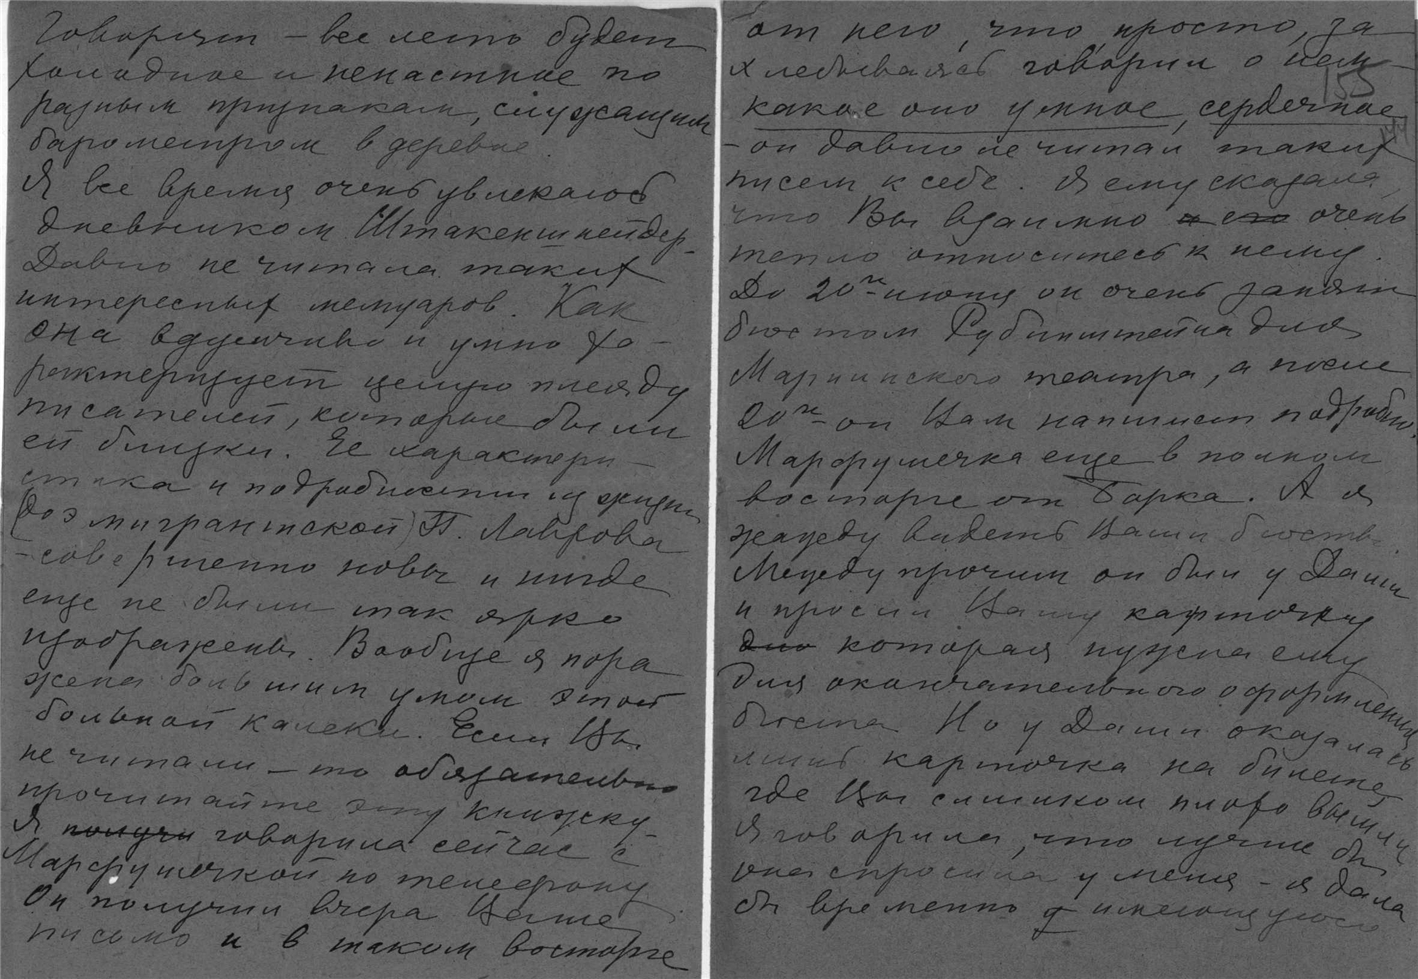 Говорят – все лето будет
холодное и ненастное по
разным признакам, служащим
барометром в деревне.
Я все время очень увлекаюсь
дневником Штакеншнейдер.
Давно не читала таких
интересных мемуаров. Как
она вдумчиво и умно ха-
рактеризует целую плеяду
писателей, которые были
ей близки. Ее характери-
стика и подробности из жизни
(доэмигрантской) П. Лаврова
– совершенно новы и нигде
еще не были так ярко
изображены. Вообще я пора
жена большим умом этой
больной калеки. Если Вы
не читали – то обязательно
прочитайте эту книжку.
Я получи говорила сейчас с
Марфушечкой по телефону
Он получил вчера Ваше
письмо и в таком восторге
от него, что, просто, за
хлебываясь говорил о нем –
155
какое оно умное, сердечное
144
– он давно не читал таких
писем к себе. Я ему сказала,
что Вы взаимно и его очень
тепло относитесь к нему.
До 20го июня он очень занят
бюстом Рубинштейна для
Мариинского театра, а после
20го – он Вам напишет подробно.
Марфушечка еще в полном
восторге от Барка. А я
жажду видеть Ваши бюсты.
Между прочим он был у Даши
и просил Вашу карточку
дло которая нужна ему
для окончательного оформления
бюста Но у Даши оказалась
лишь карточка на билете,
где Вы слишком плохо вышли
Я говорила, что лучше бы
она спросила у меня – я дала
бы временно имеющуюся